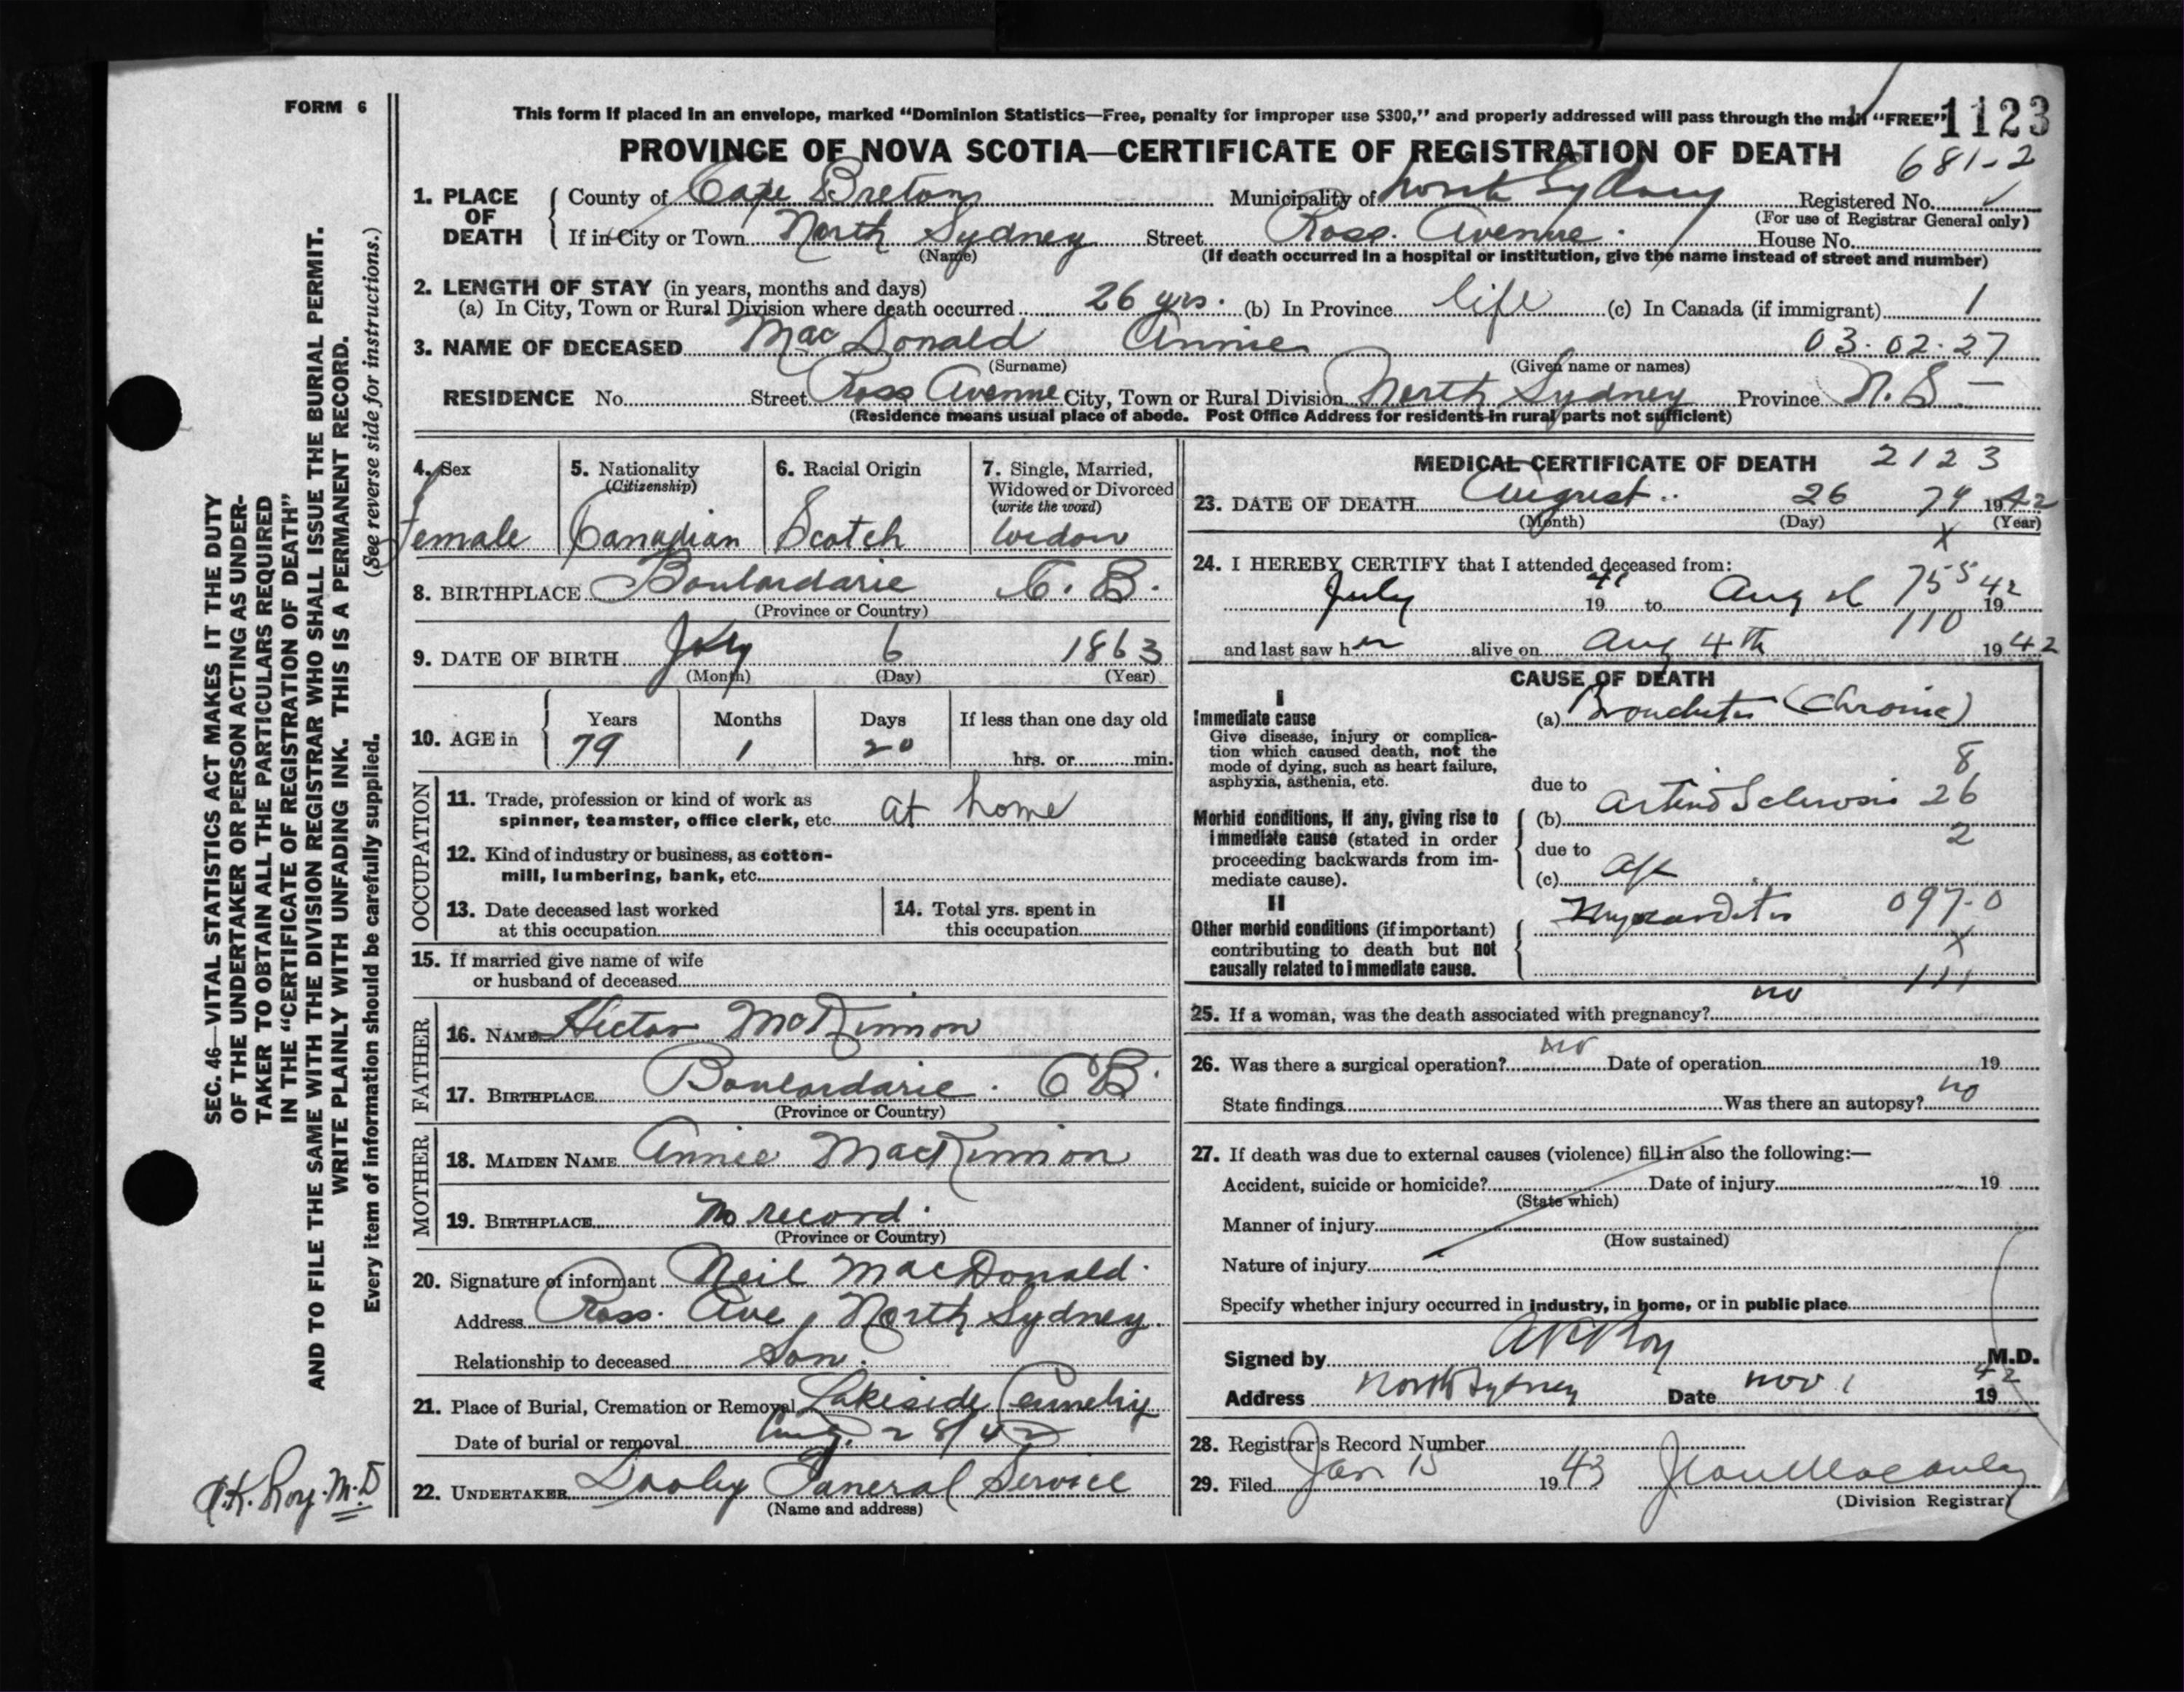 FORM 6
This form if placed in an envelope, marked "Dominion Statistics—Free, penalty for improper use $300," and properly addressed will pass through the mail "FREE"
1123
PROVINCE OF NOVA SCOTIA—CERTIFICATE OF REGISTRATION OF DEATH
681-2
1. PLACE OF DEATH
County of Cape Breton Municipality of North Sydney Registered No.
(For use of Registrar General only)
If in City or Town North Sydney Street Ross Avenue. House No.
(Name) (If death occurred in a hospital or institution, give the name instead of street and number)
2. LENGTH OF STAY (in years, months and days)
(a) In City, Town or Rural Division where death occurred 26 yrs. (b) In Province life (c) In Canada (if immigrant) 1
3. NAME OF DECEASED MacDonald Annie 03.02.27
(Surname) (Given name or names)
RESIDENCE No. Street Ross Avenue City, Town or Rural Division North Sydney Province N.S.
(Residence means usual place of abode. Post Office Address for residents in rural parts not sufficient)
4. Sex
female
5. Nationality
(Citizenship)
Canadian
6. Racial Origin
Scotch
7. Single, Married,
Widowed or Divorced
(write the word)
widow
8. BIRTHPLACE Boulardarie C.B.
(Province or Country)
9. DATE OF BIRTH July 6 1863
(Month) (Day) (Year)
10. AGE in
Years Months Days If less than one day old
79 1 20 hrs. or min.
OCCUPATION
11. Trade, profession or kind of work as
spinner, teamster, office clerk, etc. at home
12. Kind of industry or business, as cotton-
mill, lumbering, bank, etc.
13. Date deceased last worked
at this occupation
14. Total yrs. spent in
this occupation
15. If married give name of wife
or husband of deceased
FATHER
16. NAME Hector McKinnon
17. BIRTHPLACE Boulardarie. C B.
(Province or Country)
MOTHER
18. MAIDEN NAME Annie MacKinnon
19. BIRTHPLACE No record.
(Province or Country)
20. Signature of informant Neil MacDonald.
Address Ross. Ave, North Sydney.
Relationship to deceased Son.
21. Place of Burial, Cremation or Removal Lakeside Cemetery
Date of burial or removal Aug. 28/42
22. UNDERTAKER Dooley Funeral Service
(Name and address)
MEDICAL CERTIFICATE OF DEATH 2123
23. DATE OF DEATH August 26 79 1942
(Month) (Day) (Year)
X
24. I HEREBY CERTIFY that I attended deceased from:
July 1941 to Aug 75 5 1942
110
and last saw her alive on Aug 4th 1942
CAUSE OF DEATH
I
Immediate cause
Give disease, injury or complica-
tion which caused death, not the
mode of dying, such as heart failure,
asphyxia, asthenia, etc.
(a) Bronchitis (Chronic)
8
due to
Morbid conditions, if any, giving rise to
immediate cause (stated in order
proceeding backwards from im-
mediate cause).
(b) Arterio Sclerosis 26
2
due to
(c) Age
II
Other morbid conditions (if important)
contributing to death but not
causally related to immediate cause.
Myocarditis 097.0
X
111
25. If a woman, was the death associated with pregnancy? no
26. Was there a surgical operation? no Date of operation 19
State findings Was there an autopsy? no
27. If death was due to external causes (violence) fill in also the following:—
Accident, suicide or homicide? Date of injury 19
(State which)
Manner of injury
(How sustained)
Nature of injury
Specify whether injury occurred in industry, in home, or in public place
Signed by A K Roy M.D.
Address North Sydney Date Nov 1 1942
28. Registrar's Record Number
29. Filed Jan 15 1943
(Division Registrar)
SEC. 46—VITAL STATISTICS ACT MAKES IT THE DUTY
OF THE UNDERTAKER OR PERSON ACTING AS UNDER-
TAKER TO OBTAIN ALL THE PARTICULARS REQUIRED
IN THE "CERTIFICATE OF REGISTRATION OF DEATH"
AND TO FILE THE SAME WITH THE DIVISION REGISTRAR WHO SHALL ISSUE THE BURIAL PERMIT.
WRITE PLAINLY WITH UNFADING INK. THIS IS A PERMANENT RECORD.
Every item of information should be carefully supplied. (See reverse side for instructions.)
A.K. Roy. M.D